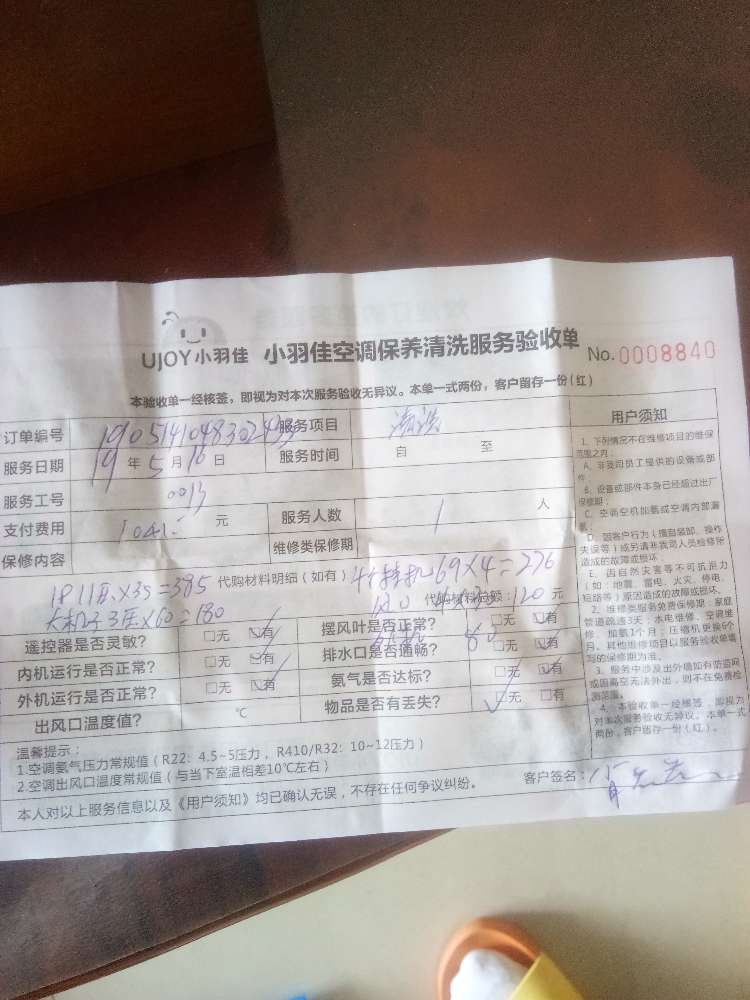 UJOY小羽佳 小羽佳空调保养清洗服务验收单 No.0008840
本验收单一经核签，即视为对本次服务验收无异议。本单一式两份，客户留存一份(红)
订单编号 服务项目 清洗
服务日期 19 年 5 月 16 日 服务时间 自 至
服务工号 0013
支付费用 1041 元 服务人数 1 人
保修内容 维修类保修期
1P 11百×35=385 代购材料明细（如有） 69×4=276
×60=180 代购材料总额：120 元
遥控器是否灵敏? □无 ☑有 摆风叶是否正常? □无 ☑有
内机运行是否正常? □无 ☑有 排水口是否通畅? 80 □无 ☑有
外机运行是否正常? □无 ☑有 氨气是否达标? □无 ☑有
出风口温度值? ℃ 物品是否有丢失? ☑无 □有
温馨提示：
1.空调氨气压力常规值（R22：4.5~5压力，R410/R32：10~12压力）
2.空调出风口温度常规值（与当下室温相差10℃左右）
本人对以上服务信息以及《用户须知》均已确认无误，不存在任何争议纠纷。 客户签名：
用户须知
1、下列情况不在维修项目的维保
范围之内：
A、非我司员工提供的设备或部
件
B、设备或部件本身已经超过出厂
保修期；
C、空调空机加氨或空调内部漏
氨；
D、因客户行为（擅自装卸、操作
失误等）或另请非我司人员检修所
造成的故障或损坏；
E、因自然灾害等不可抗阻力
（如：地震、雷电、火灾、停电、
短路等）原因造成的故障或损坏。
2、维修类服务免费保修期：家庭
管道疏通3天；水电维修、空调维
修、加氨1个月；压缩机更换6个
月。其他维修项目以服务验收单填
写的保修期为准。
3、服务中涉及出外墙如有防盗网
或隔离空无法外出，则不在免费检
测范围。
4、本验收单一经核签，即视为
对本次服务验收无异议。本单一式
两份，客户留存一份（红）。